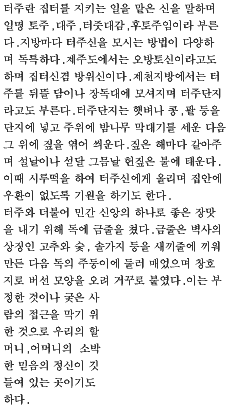 터주란 집터를 지키는 일을 맡은 신을 말하며
일명 토주,대주,터줏대감,후토주임이라 부른
다.지방마다 터주신을 모시는 방법이 다양하
며 독특하다.제주도에서는 오방토신이라고도
하며 집터신겸 방위신이다.제천지방에서는 터
주를 뒤뜰 담이나 장독대에 모셔지며 터주단지
라고도 부른다.터주단지는 햇벼나 콩,팥 등을
단지에 넣고 주위에 밤나무 막대기를 세운 다음
그 위에 짚을 엮어 씌운다.짚은 해마다 갈아주
며 설날이나 섣달 그믐날 헌짚은 불에 태운다.
이때 시루떡을 하여 터주신에게 올리며 집안에
우환이 없도록 기원을 하기도 한다.
터주와 더불어 민간 신앙의 하나로 좋은 장맛
을 내기 위해 독에 금줄을 쳤다.금줄은 벽사의
상징인 고추와 숯, 솔가지 등을 새끼줄에 끼워
만든 다음 독의 주둥이에 둘러 매었으며 창호
지로 버선 모양을 오려 거꾸로 붙였다.이는 부
정한 것이나 궂은 사
람의 접근을 막기 위
한 것으로 우리의 할
머니,어머니의 소박
한 믿음의 정신이 깃
들여 있는 곳이기도
하다.